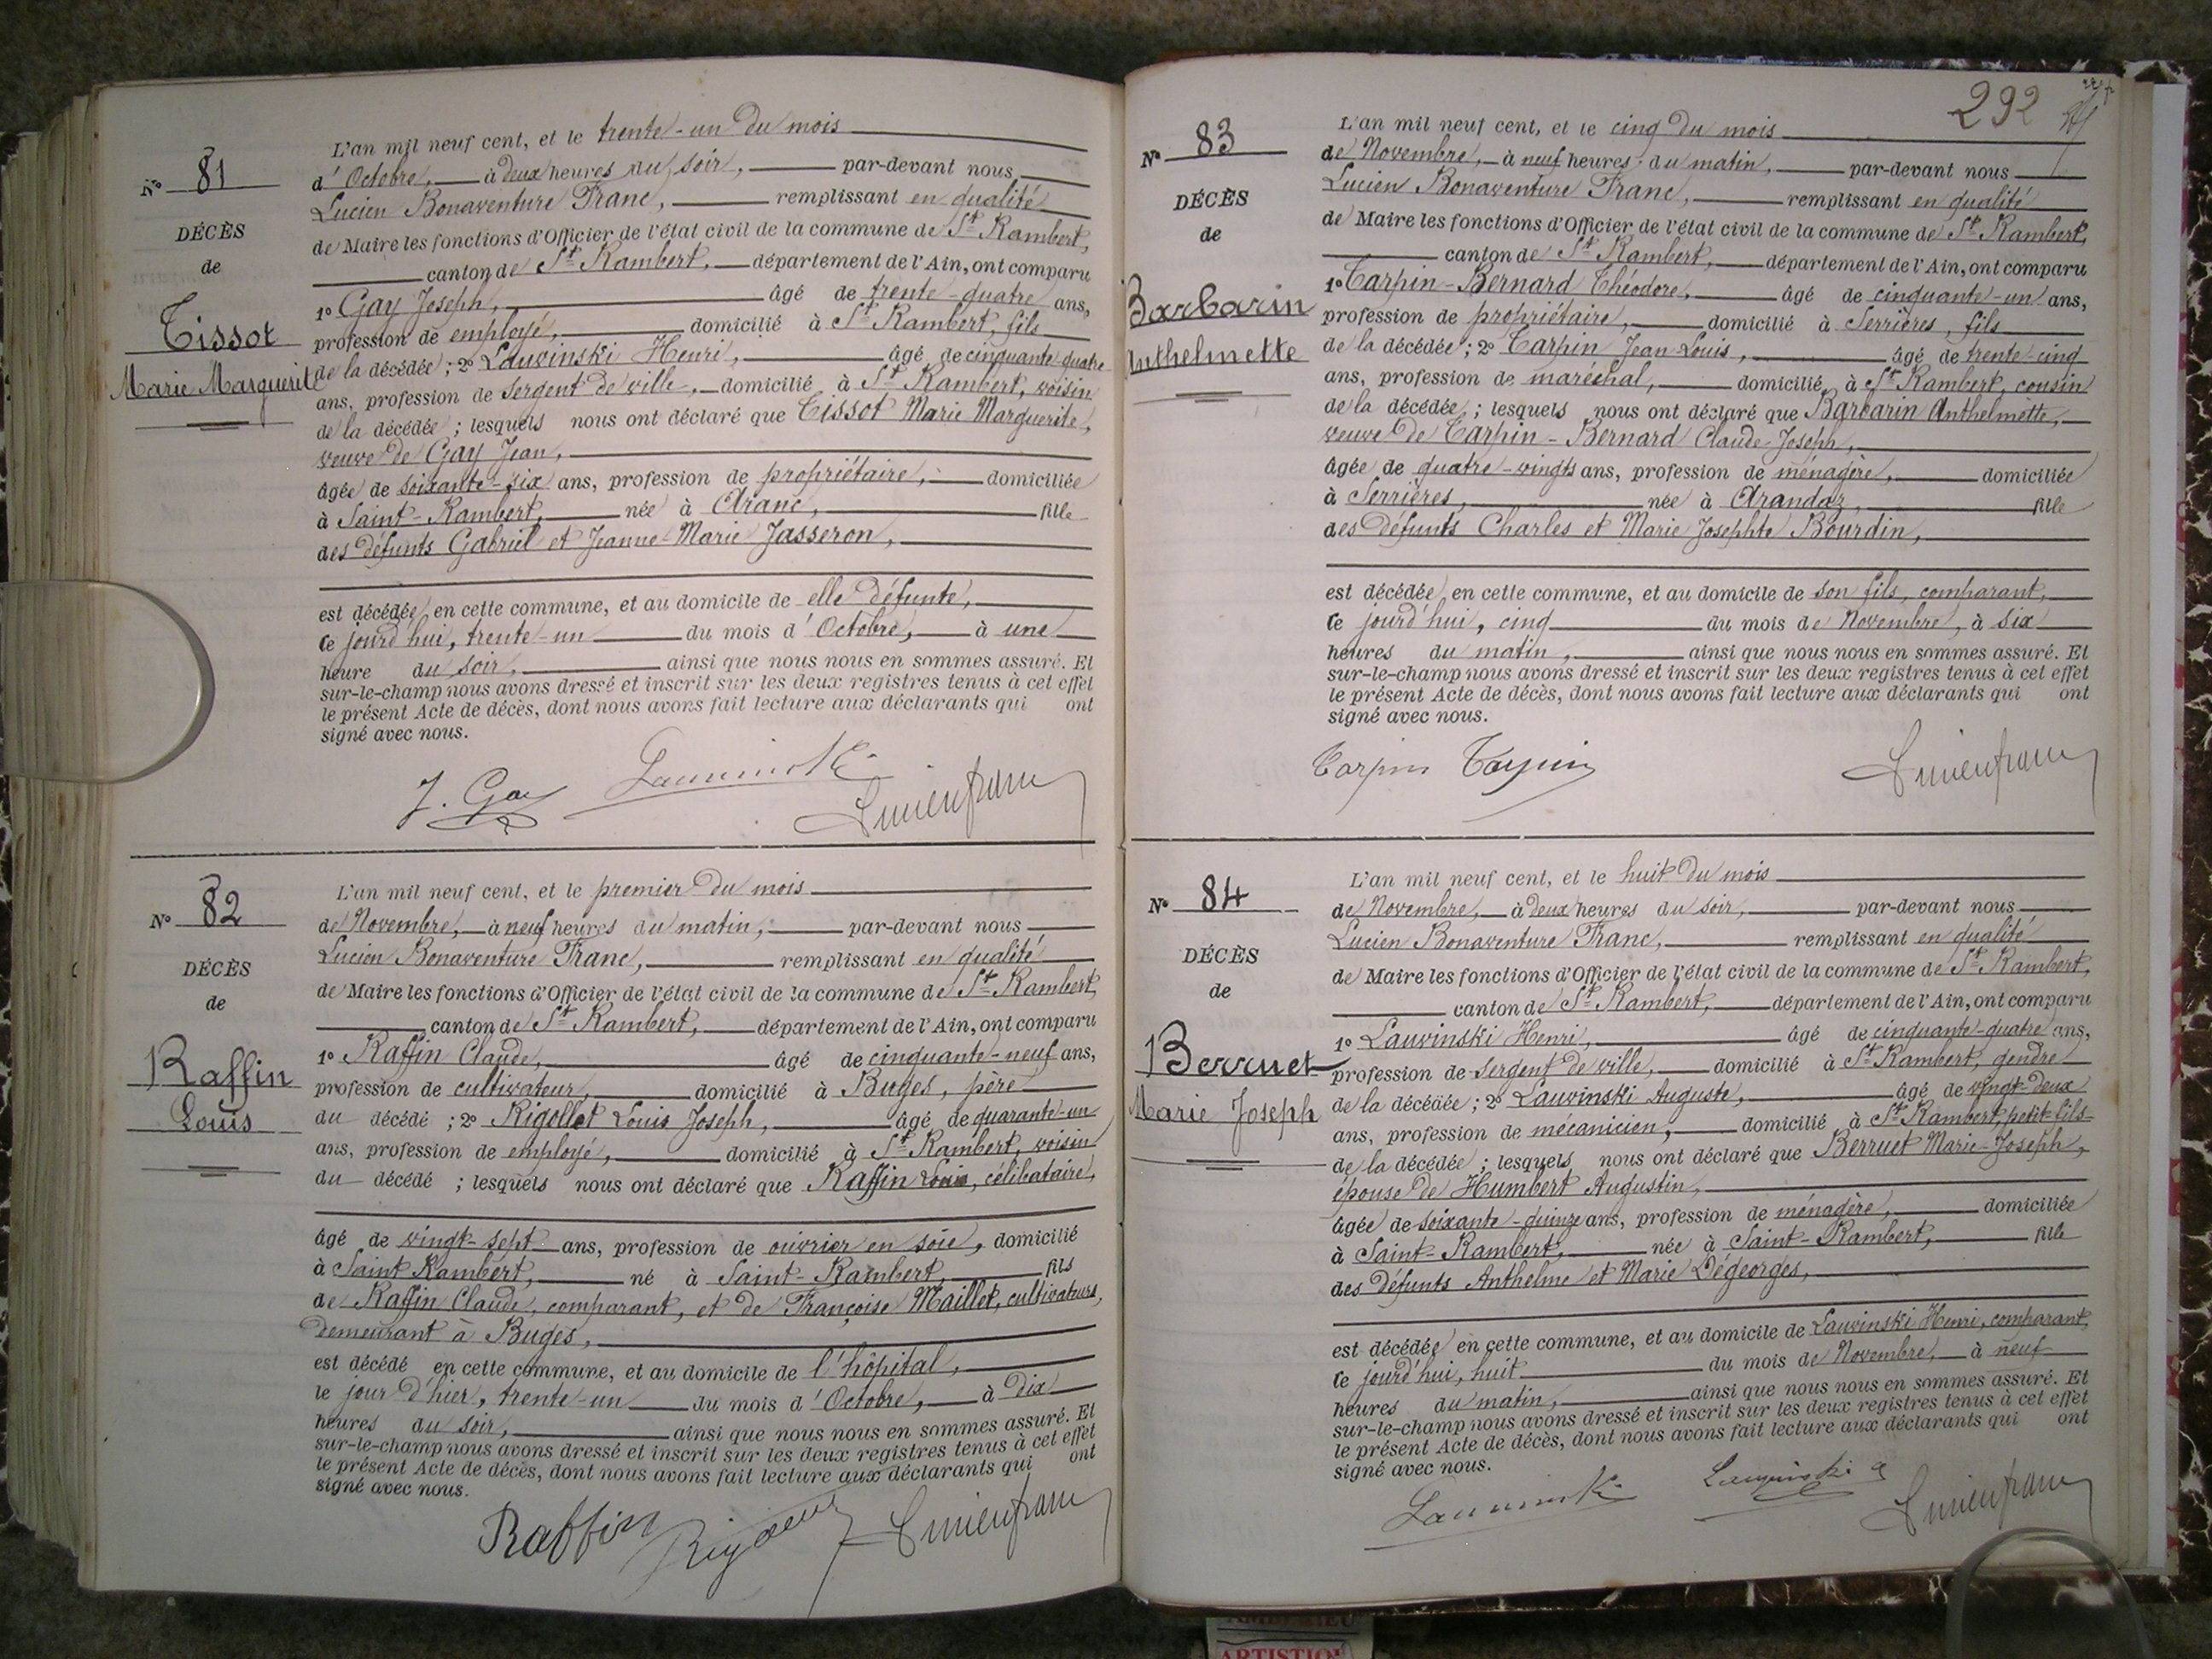 N° 81
DÉCÈS
de
Tissot
Marie Marguerite
L'an mil neuf cent, et le trente-un du mois
d'Octobre, à deux heures du soir, par-devant nous
Lucien Bonaventure Franc, remplissant en qualité
de Maire les fonctions d'Officier de l'état civil de la commune de St Rambert,
canton de St Rambert, département de l'Ain, ont comparu
1° Gay Joseph, âgé de trente-quatre ans,
profession de employé, domicilié à St Rambert, fils
de la décédée; 2° Lauvinski Henri, âgé de cinquante quatre
ans, profession de sergent de ville, domicilié à St Rambert, voisin
de la décédée; lesquels nous ont déclaré que Tissot Marie Marguerite,
veuve de Gay Jean,
âgée de soixante-six ans, profession de propriétaire, domiciliée
à Saint-Rambert, née à Aranc, fille
des défunts Gabriel et Jeanne-Marie Jasseron,
est décédée en cette commune, et au domicile de elle défunte,
ce jourd'hui, trente-un du mois d'Octobre, à une
heure du soir, ainsi que nous nous en sommes assuré. Et
sur-le-champ nous avons dressé et inscrit sur les deux registres tenus à cet effet
le présent Acte de décès, dont nous avons fait lecture aux déclarants qui ont
signé avec nous.
J. Gay Lauvinski
Lucien franc
N° 82
DÉCÈS
de
Raffin
Louis
L'an mil neuf cent, et le premier du mois
de Novembre, à neuf heures du matin, par-devant nous
Lucien Bonaventure Franc, remplissant en qualité
de Maire les fonctions d'Officier de l'état civil de la commune de St Rambert,
canton de St Rambert, département de l'Ain, ont comparu
1° Raffin Claude, âgé de cinquante-neuf ans,
profession de cultivateur, domicilié à Buges, père
du décédé; 2° Rigollet Louis Joseph, âgé de quarante-un
ans, profession de employé, domicilié à St Rambert, voisin
du décédé; lesquels nous ont déclaré que Raffin Louis, célibataire,
âgé de vingt-sept ans, profession de ouvrier en soie, domicilié
à Saint Rambert, né à Saint-Rambert, fils
de Raffin Claude, comparant, et de Françoise Maillet, cultivateurs,
demeurant à Buges,
est décédé en cette commune, et au domicile de l'hôpital,
le jour d'hier, trente-un du mois d'Octobre, à dix
heures du soir, ainsi que nous nous en sommes assuré. Et
sur-le-champ nous avons dressé et inscrit sur les deux registres tenus à cet effet
le présent Acte de décès, dont nous avons fait lecture aux déclarants qui ont
signé avec nous.
Raffin Lucien franc
292
N° 83
DÉCÈS
de
Barbarin
Anthelmette
L'an mil neuf cent, et le cinq du mois
de Novembre, à neuf heures du matin, par-devant nous
Lucien Bonaventure Franc, remplissant en qualité
de Maire les fonctions d'Officier de l'état civil de la commune de St Rambert,
canton de St Rambert, département de l'Ain, ont comparu
1° Tarpin-Bernard Théodore, âgé de cinquante-un ans,
profession de propriétaire, domicilié à Serrières, fils
de la décédée; 2° Tarpin Jean-Louis, âgé de trente-cinq
ans, profession de maréchal, domicilié à St Rambert, cousin
de la décédée; lesquels nous ont déclaré que Barbarin Anthelmette,
veuve de Tarpin-Bernard Claude-Joseph,
âgée de quatre-vingts ans, profession de ménagère, domiciliée
à Serrières, née à Arandaz, fille
des défunts Charles et Marie Josephte Bourdin,
est décédée en cette commune, et au domicile de son fils, comparant,
ce jourd'hui, cinq du mois de Novembre, à six
heures du matin, ainsi que nous nous en sommes assuré. Et
sur-le-champ nous avons dressé et inscrit sur les deux registres tenus à cet effet
le présent Acte de décès, dont nous avons fait lecture aux déclarants qui ont
signé avec nous.
Tarpin Tarpin Lucien franc
N° 84
DÉCÈS
de
Berruet
Marie Joseph
L'an mil neuf cent, et le huit du mois
de Novembre, à deux heures du soir, par-devant nous
Lucien Bonaventure Franc, remplissant en qualité
de Maire les fonctions d'Officier de l'état civil de la commune de St Rambert,
canton de St Rambert, département de l'Ain, ont comparu
1° Lauvinski Henri, âgé de cinquante-quatre ans,
profession de sergent de ville, domicilié à St Rambert, gendre
de la décédée; 2° Lauvinski Auguste, âgé de vingt-deux
ans, profession de mécanicien, domicilié à St Rambert, petit-fils
de la décédée; lesquels nous ont déclaré que Berruet Marie-Joseph,
épouse de Humbert Augustin,
âgée de soixante-quinze ans, profession de ménagère, domiciliée
à Saint-Rambert, née à Saint-Rambert, fille
des défunts Anthelme et Marie Dégeorges,
est décédée en cette commune, et au domicile de Lauvinski Henri, comparant,
ce jourd'hui, huit du mois de Novembre, à neuf
heures du matin, ainsi que nous nous en sommes assuré. Et
sur-le-champ nous avons dressé et inscrit sur les deux registres tenus à cet effet
le présent Acte de décès, dont nous avons fait lecture aux déclarants qui ont
signé avec nous.
Lauvinski Lauvinski a Lucien franc
ARTISTIQ